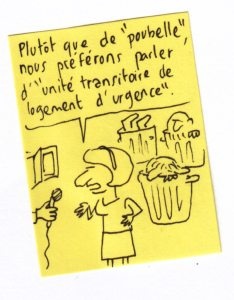 Plutôt que de "poubelle",
nous préférons parler
d'"unité transitoire de
logement d'urgence".